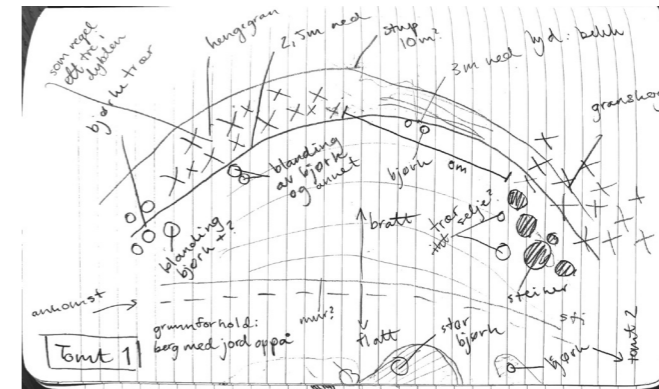 som regel
ett tre i
dybden
bjørke trær
hengegran
2,5m ned
stup
10m?
3m ned
lyd: bekk
granskog
blanding
av bjørk
og annet
bjørk
0m
blanding
bjørk + ?
bratt
trær
selje?
steiner
ankomst
grunnforhold:
berg med jord oppå
mur?
flatt
stor
bjørk
bjørk
sti
tomt 2
Tomt 1